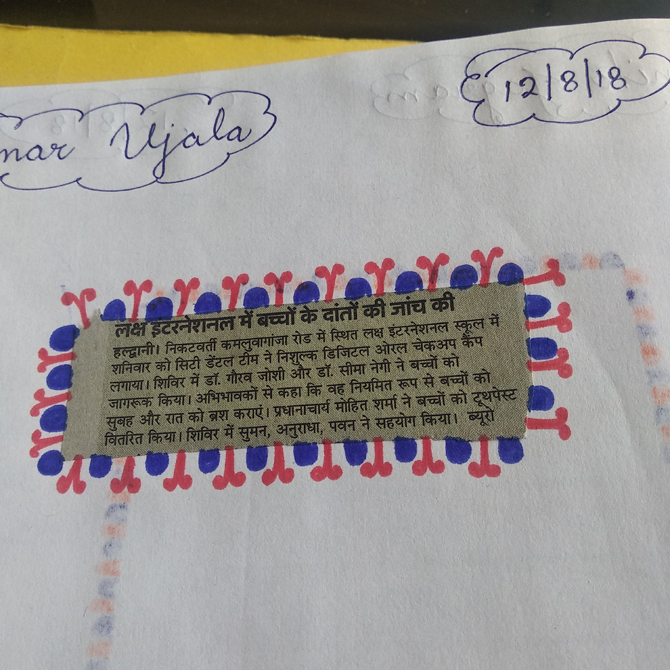 mar Ujala
12/8/18
लक्ष इंटरनेशनल में बच्चों के दांतों की जांच की
हल्द्वानी। निकटवर्ती कमलुवागांजा रोड में स्थित लक्ष इंटरनेशनल स्कूल में
शनिवार को सिटी डेंटल टीम ने निशुल्क डिजिटल ओरल चेकअप कैंप
लगाया। शिविर में डॉ. गौरव जोशी और डॉ. सीमा नेगी ने बच्चों को
जागरूक किया। अभिभावकों से कहा कि वह नियमित रूप से बच्चों को
सुबह और रात को ब्रश कराएं। प्रधानाचार्य मोहित शर्मा ने बच्चों को टूथपेस्ट
वितरित किया। शिविर में सुमन, अनुराधा, पवन ने सहयोग किया। ब्यूरो